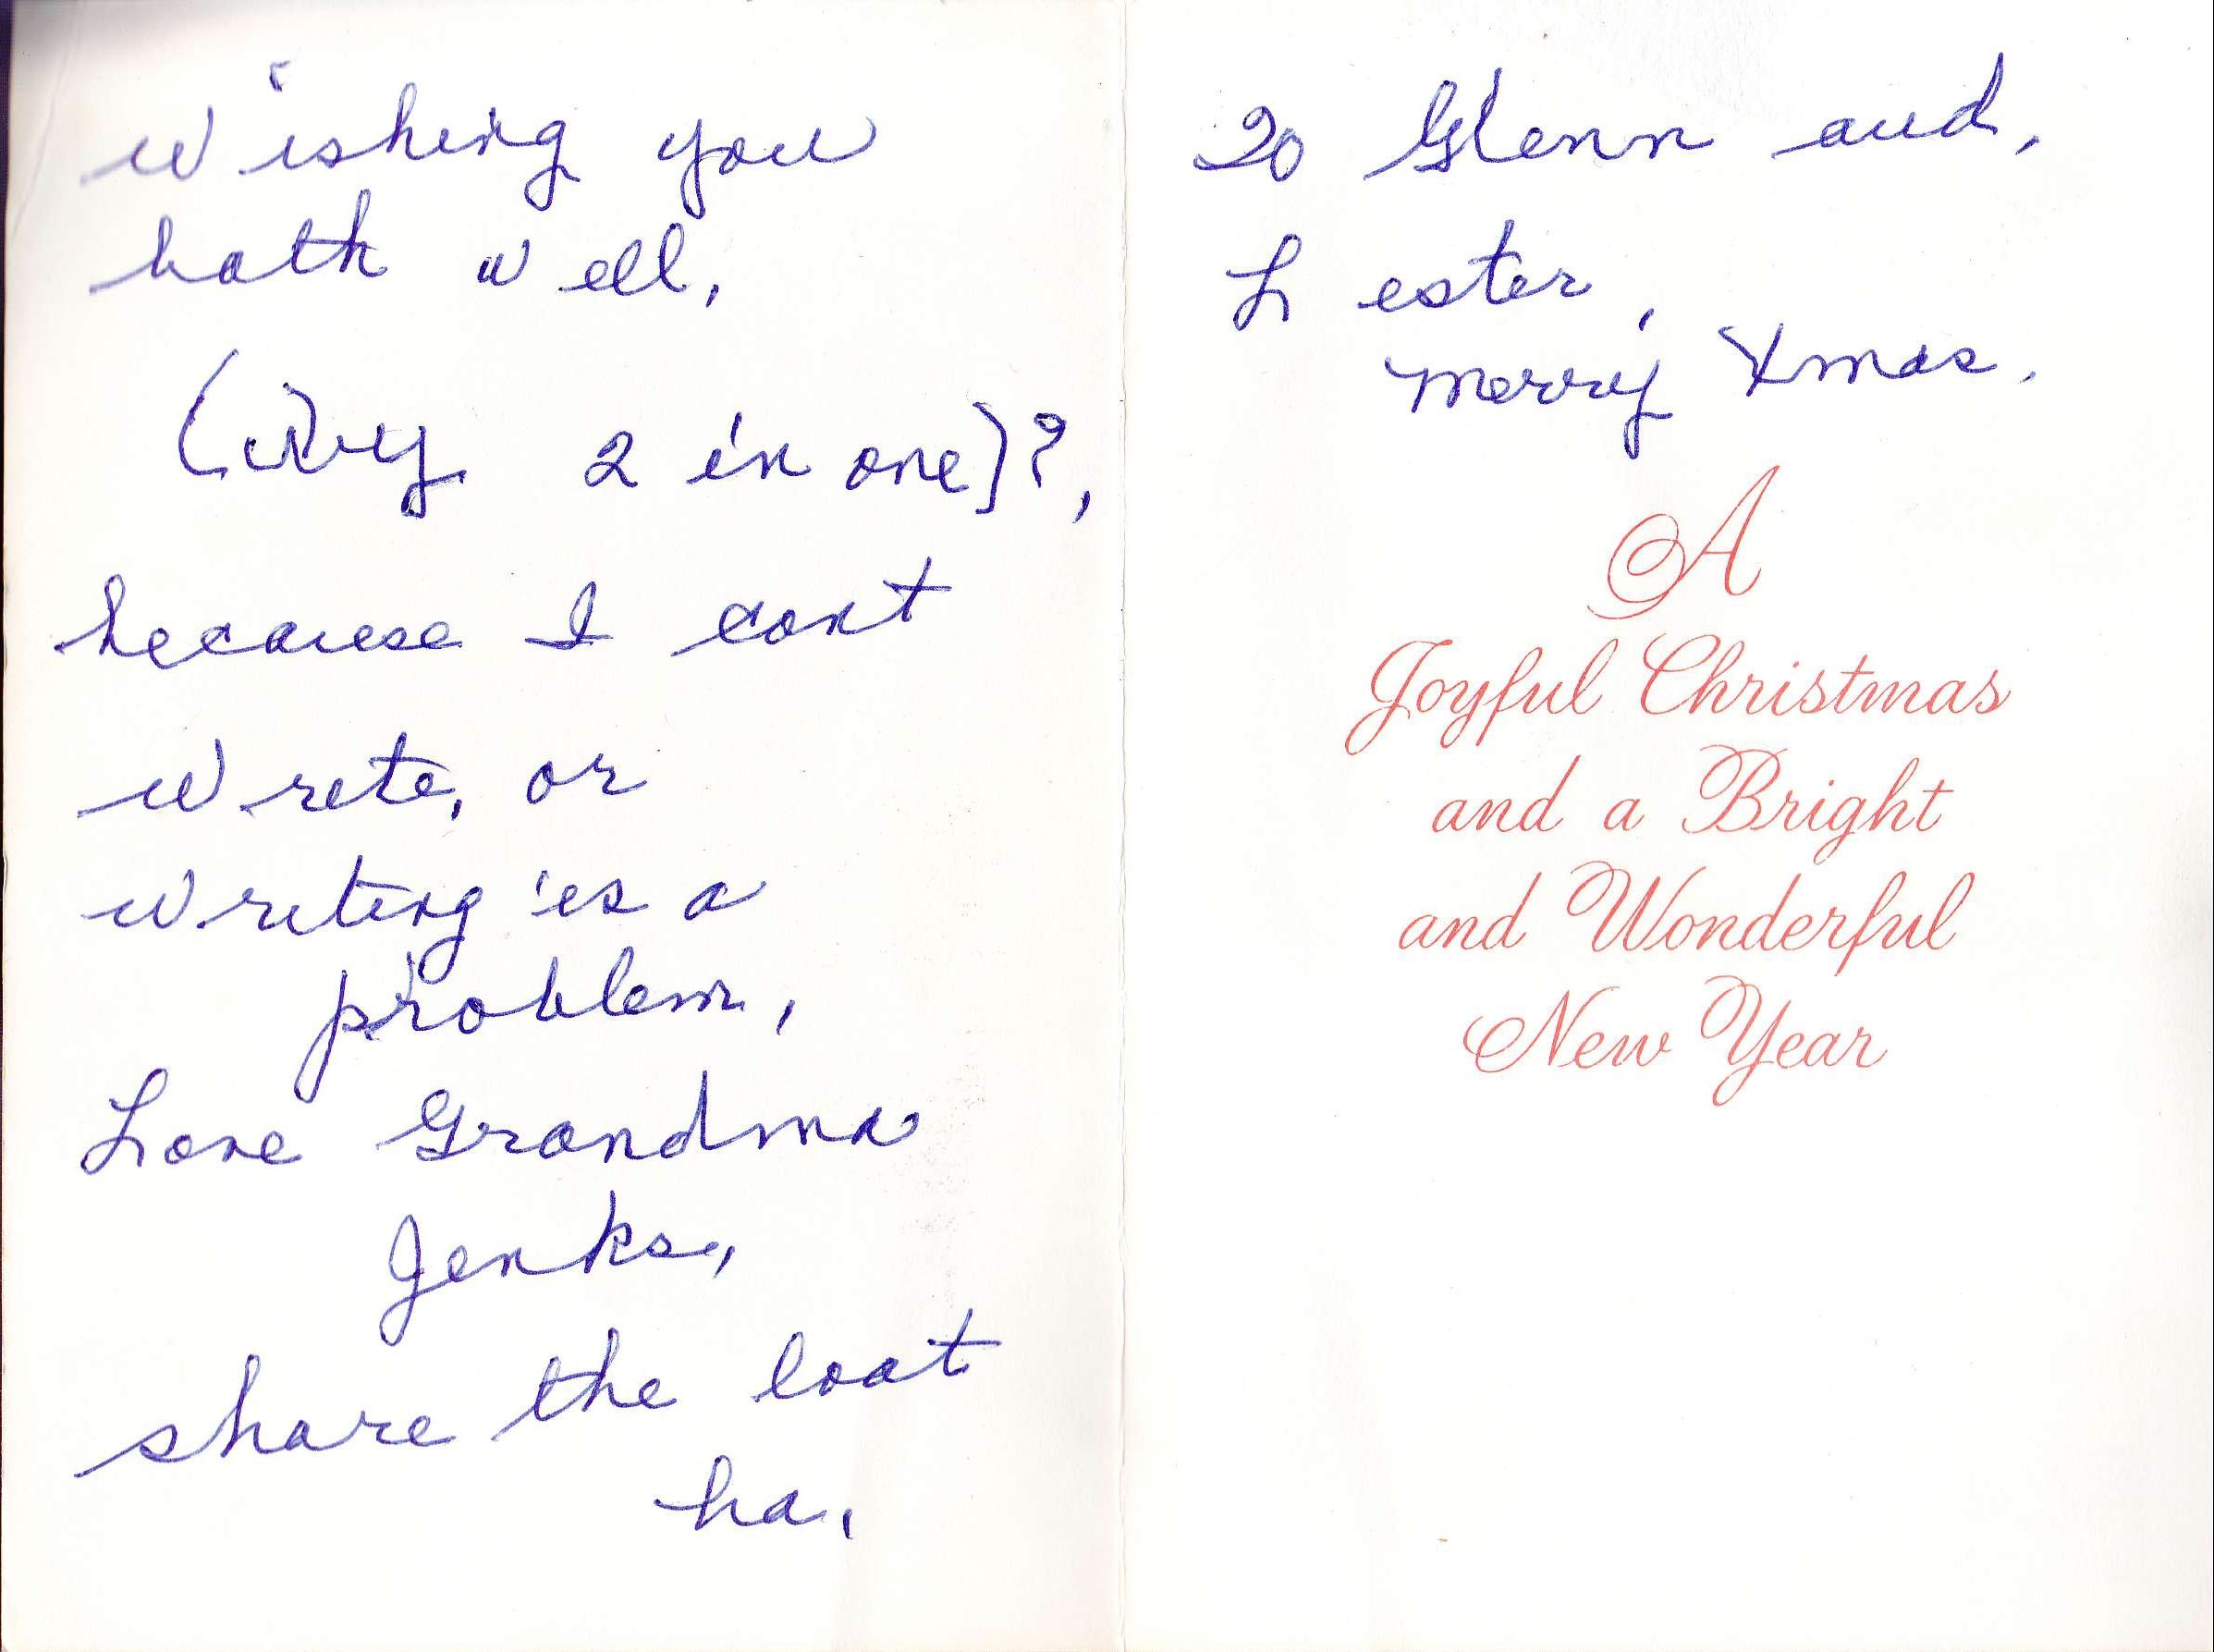 Wishing you
both well,
(Why 2 in one)?,
because I cant
write, or
writing is a
problem,
Love Grandma
Jenks,
share the loat
ha,
To Glenn and,
Lester,
Merry Xmas.
A
Joyful Christmas
and a Bright
and Wonderful
New Year